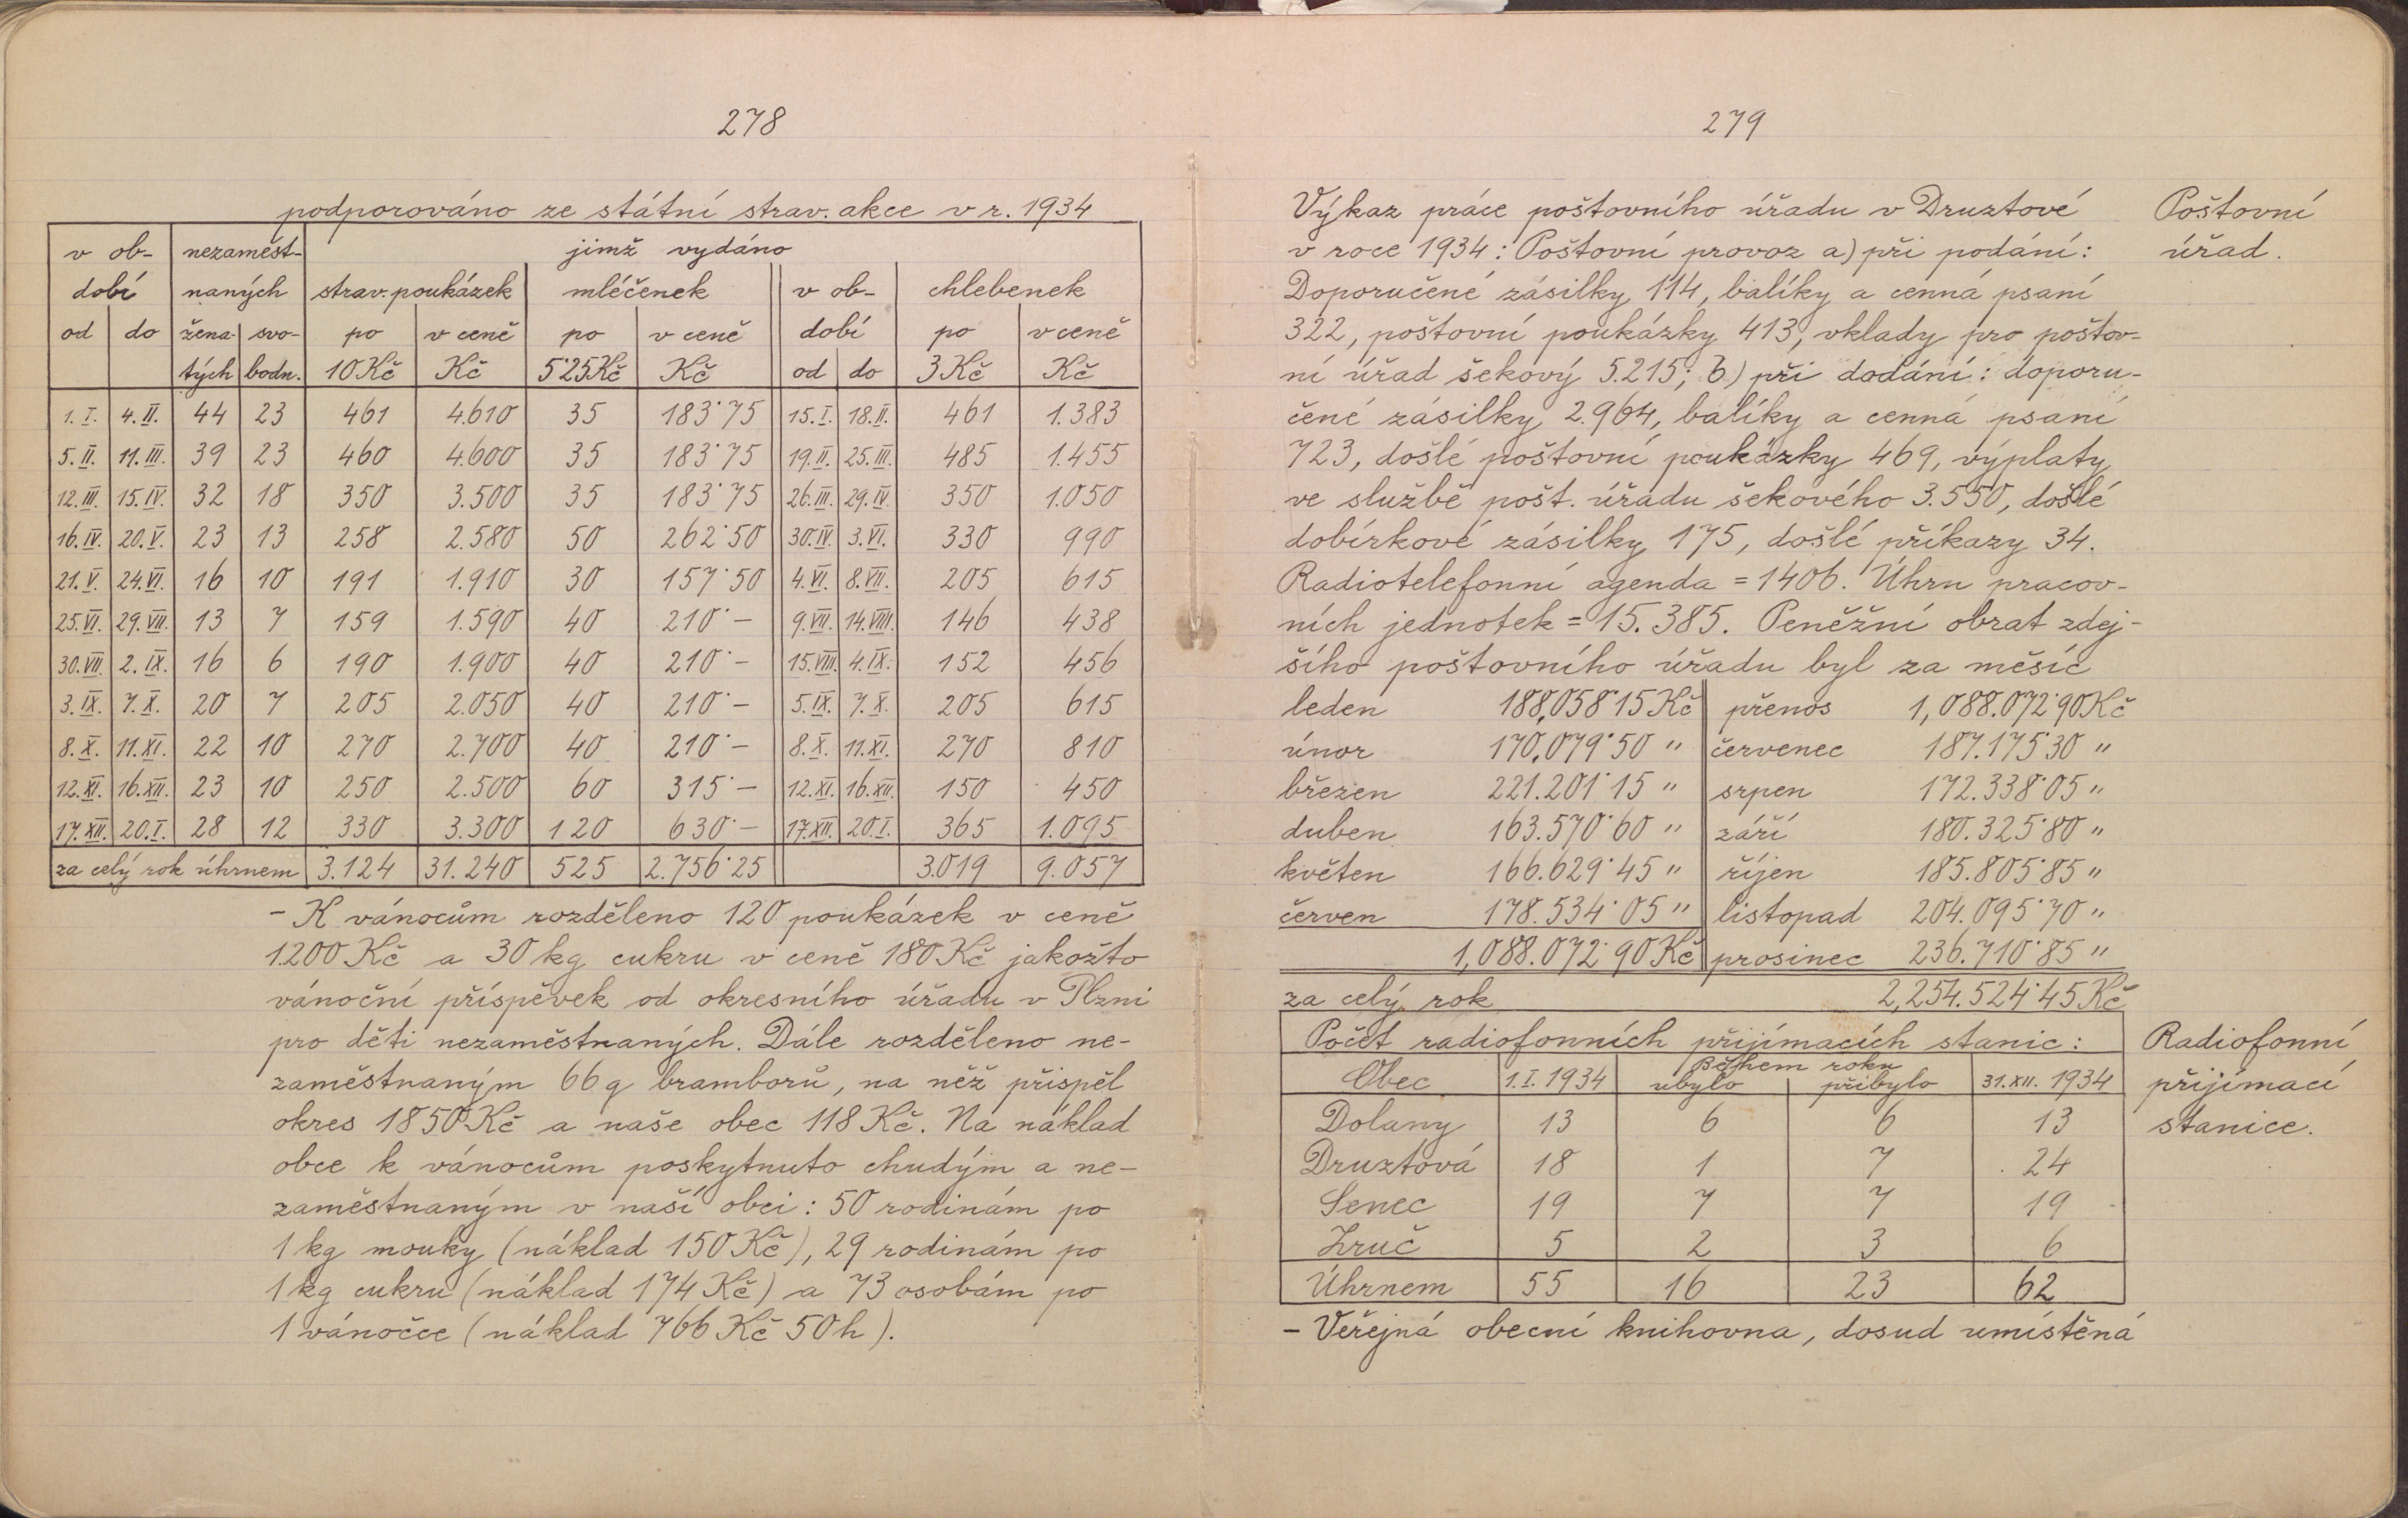 278
podporováno ze státní strav. akce v r. 1934
v ob- nezaměst- jimž vydáno
dobí naných strav. poukázek mléčenek v ob- chlebenek
od do žena- svo- po v ceně po v ceně dobí po v ceně
tých bodn. 10 Kč Kč 5˙25 Kč Kč od do 3 Kč Kč
1. I. 4. II. 44 23 461 4.610 35 183˙75 15. I. 18. II. 461 1.383
5. II. 11. III. 39 23 460 4.600 35 183˙75 19. II. 25. III. 485 1.455
12. III. 15. IV. 32 18 350 3.500 35 183˙75 26. III. 29. IV. 350 1.050
16. IV. 20. V. 23 13 258 2.580 50 262˙50 30. IV. 3. VI. 330 990
21. V. 24. VI. 16 10 191 1.910 30 157˙50 4. VI. 8. VII. 205 615
25. VI. 29. VII. 13 7 159 1.590 40 210˙– 9. VII. 14. VIII. 146 438
30. VII. 2. IX. 16 6 190 1.900 40 210˙– 15. VIII. 4. IX. 152 456
3. IX. 7. X. 20 7 205 2.050 40 210˙– 5. IX. 7. X. 205 615
8. X. 11. XI. 22 10 270 2.700 40 210˙– 8. X. 11. XI. 270 810
12. XI. 16. XII. 23 10 250 2.500 60 315˙– 12. XI. 16. XII. 150 450
17. XII. 20. I. 28 12 330 3.300 120 630˙– 17. XII. 20. I. 365 1.095
za celý rok úhrnem 3.124 31.240 525 2.756˙25 3.019 9.057
– K vánocům rozděleno 120 poukázek v ceně
1.200 Kč a 30 kg cukru v ceně 180 Kč jakožto
vánoční příspěvek od okresního úřadu v Plzni
pro děti nezaměstnaných. Dále rozděleno ne-
zaměstnaným 66 q bramborů, na něž přispěl
okres 1850 Kč a naše obec 118 Kč. Na náklad
obce k vánocům poskytnuto chudým a ne-
zaměstnaným v naší obci: 50 rodinám po
1 kg mouky (náklad 150 Kč), 29 rodinám po
1 kg cukru (náklad 174 Kč) a 73 osobám po
1 vánočce (náklad 766 Kč 50 h).
279
Výkaz práce poštovního úřadu v Druztové
v roce 1934: Poštovní provoz a) při podání:
Doporučené zásilky 114, balíky a cenná psaní
322, poštovní poukázky 413, vklady pro poštov-
ní úřad šekový 5.215; b) při dodání: doporu-
čené zásilky 2.964, balíky a cenná psaní
723, došlé poštovní poukázky 469, výplaty
ve službě pošt. úřadu šekového 3.550, došlé
dobírkové zásilky 175, došlé příkazy 34.
Radiotelefonní agenda = 1406. Úhrn pracov-
ních jednotek = 15.385. Peněžní obrat zdej-
šího poštovního úřadu byl za měsíc
Poštovní
úřad.
leden 188,058˙15 Kč přenos 1,088.072˙90 Kč
únor 170,079˙50 " červenec 187.175˙30 "
březen 221.201˙15 " srpen 172.338˙05 "
duben 163.570˙60 " září 180.325˙80 "
květen 166.629˙45 " říjen 185.805˙85 "
červen 178.534˙05 " listopad 204.095˙70 "
1,088.072˙90 Kč prosinec 236.710˙85 "
za celý rok 2,254.524˙45 Kč
Počet radiofonních přijímacích stanic:
Během roku
Obec 1. I. 1934 ubylo přibylo 31. XII. 1934
Dolany 13 6 6 13
Druztová 18 1 7 24
Senec 19 7 7 19
Zruč 5 2 3 6
Úhrnem 55 16 23 62
Radiofonní
přijímací
stanice.
– Veřejná obecní knihovna, dosud umístěná